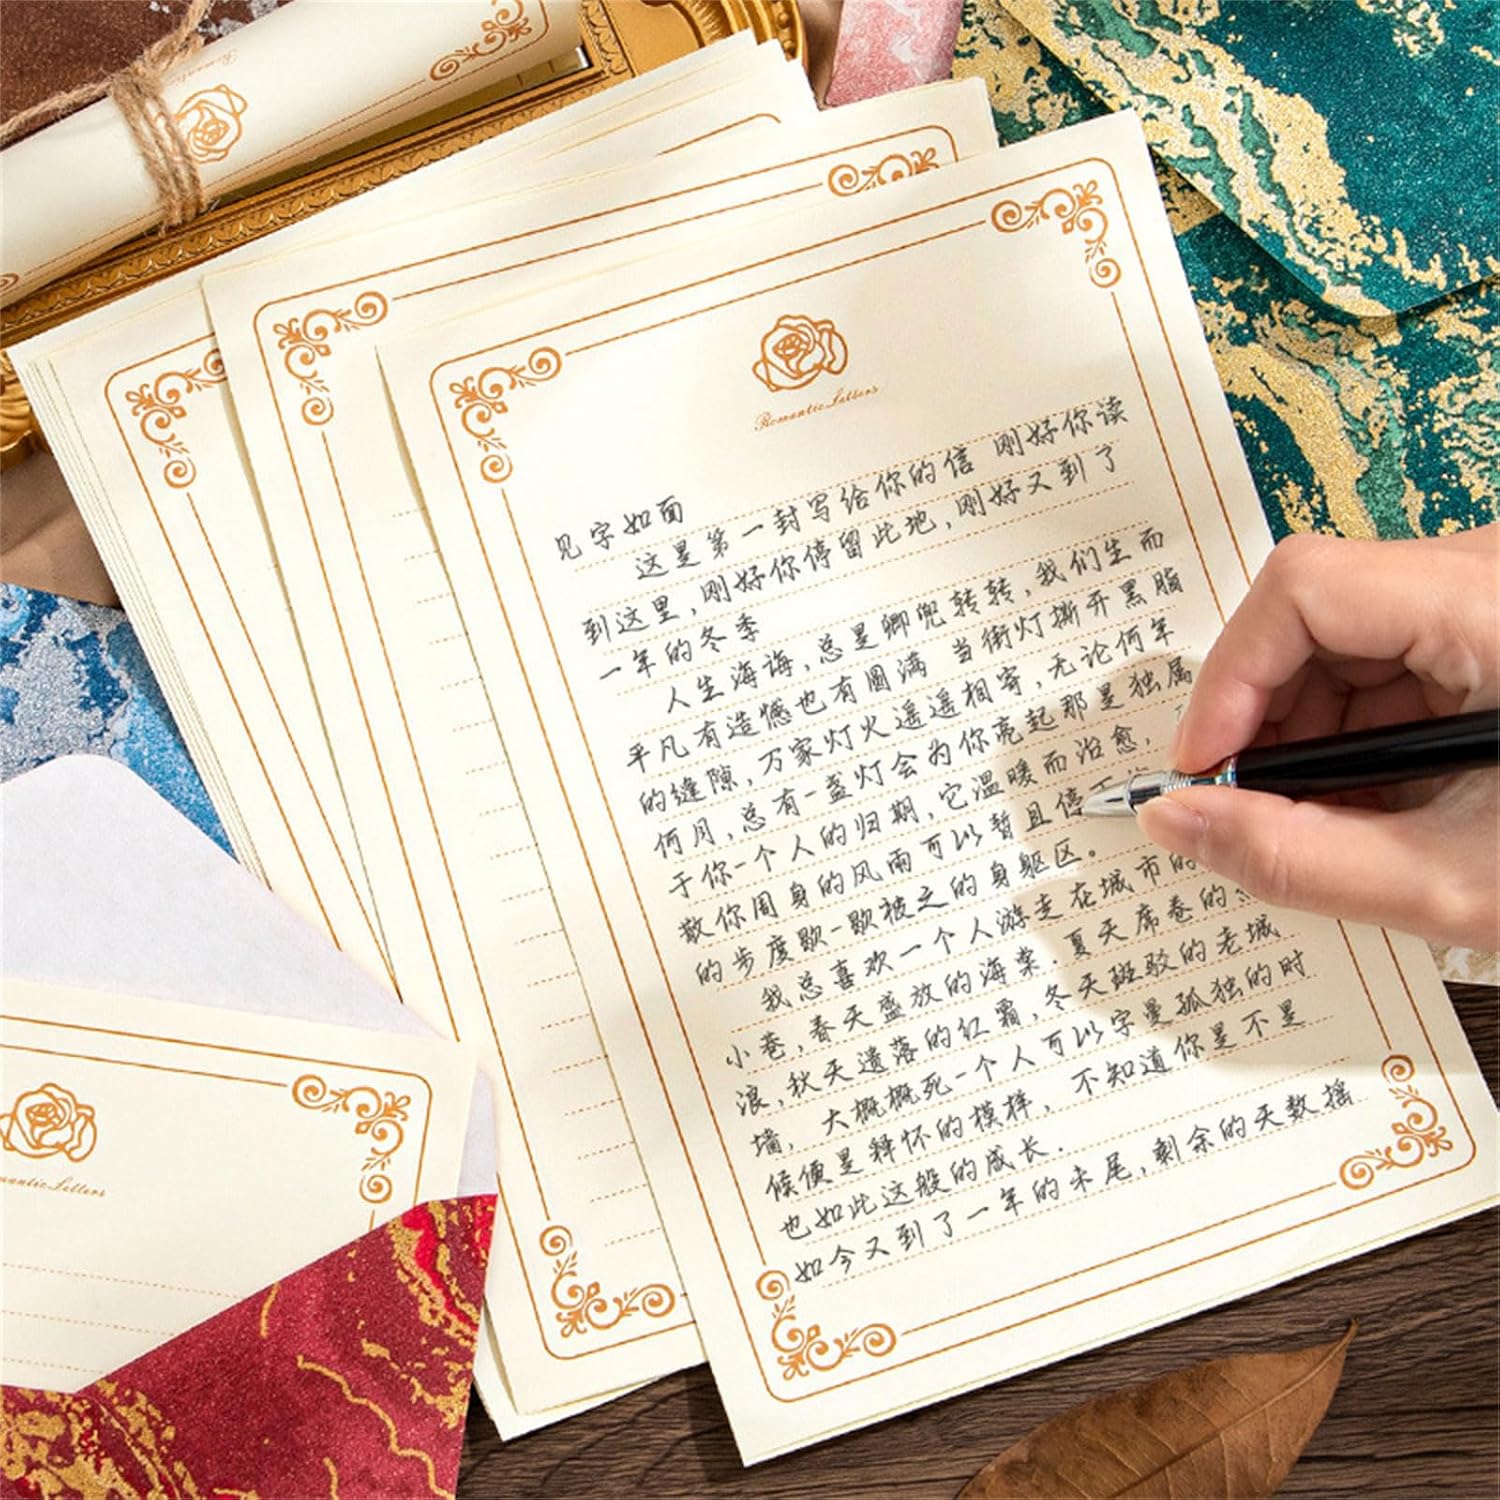 Romantic Letters
见字如面
这是第一封写给你的信 刚好你读
到这里,刚好你停留此地,刚好又到了
一年的冬季
人生海海,总是卿兜转转,我们生而
平凡有造憾也有圆满 当街灯撕开黑脂
的缝隙,万家灯火遥遥相寄,无论何年
何月,总有一盏灯会为你亮起那是独属
于你一个人的归期,它温暖而治愈,
散你周身的风雨可以暂且停下
的步度歇一歇被之的身躯区。
我总喜欢一个人游走在城市的
小巷,春天盛放的海棠.夏天席卷的
浪,秋天遗落的红霜,冬天斑驳的老城
墙, 大概概死一个人可以字曼孤独的时
候便是释怀的模样, 不知道你是不是
也如此这般的成长.
如今又到了一年的末尾,剩余的天数摇
Romantic Letters
Romantic